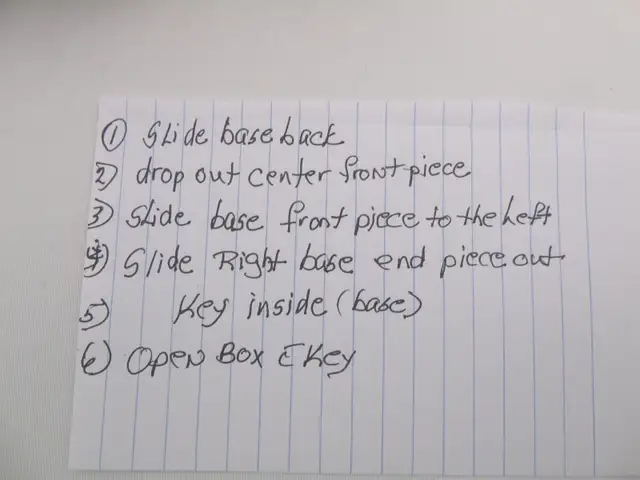 ① Slide base back
2) drop out center front piece
3) Slide base front piece to the Left
4) Slide Right base end piece out
5) Key inside (base)
6) Open Box Key